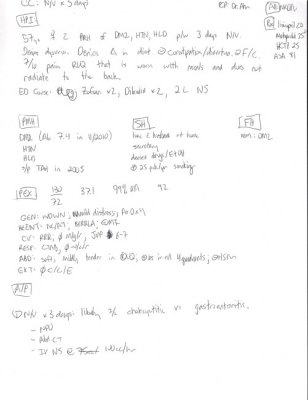 CC: N/V x 3 days
PCP: Dr. An
HPI
Meds/All
57yo ♀ c PMH of DM2, HTN, HLD p/w 3 days N/V.
Rx
lisinopril 20
Denies dysuria. Denies Δ in diet Ø constipation/diarrhea. Ø F/C.
Metoprolol 25
HCTZ 25
7/10 pain RUQ that is worse with meals and does not
ASA 81
radiate to the back.
ED Course: Zofran x2, Dilaudid x2, 2L NS
PMH
SH
FH
DM2 (A1c 7.4 in 11/2010)
lives c husband at home
mom: DM2
HTN
secretary
HLD
denies drugs/EtOH
s/p TAH in 2005
25 pk/yr smoking
PEX
132/72
37.1
99% RA
92
GEN: WDWN, mild distress, A+Ox4
HEENT: NC/AT, PERRLA
CV: RRR, Ø m/g/r, JVP 6-7
RESP: CTAB, Ø w/r/r
ABD: soft, mildly tender in RUQ, BS in all 4 quadrants, Ø HSM
EXT: Ø c/c/e
A/P
① N/V x 3 days: likely 2/2 cholecystitis vs gastroenteritis.
- NPO
- Abd CT
- IV NS @ 100 cc/hr